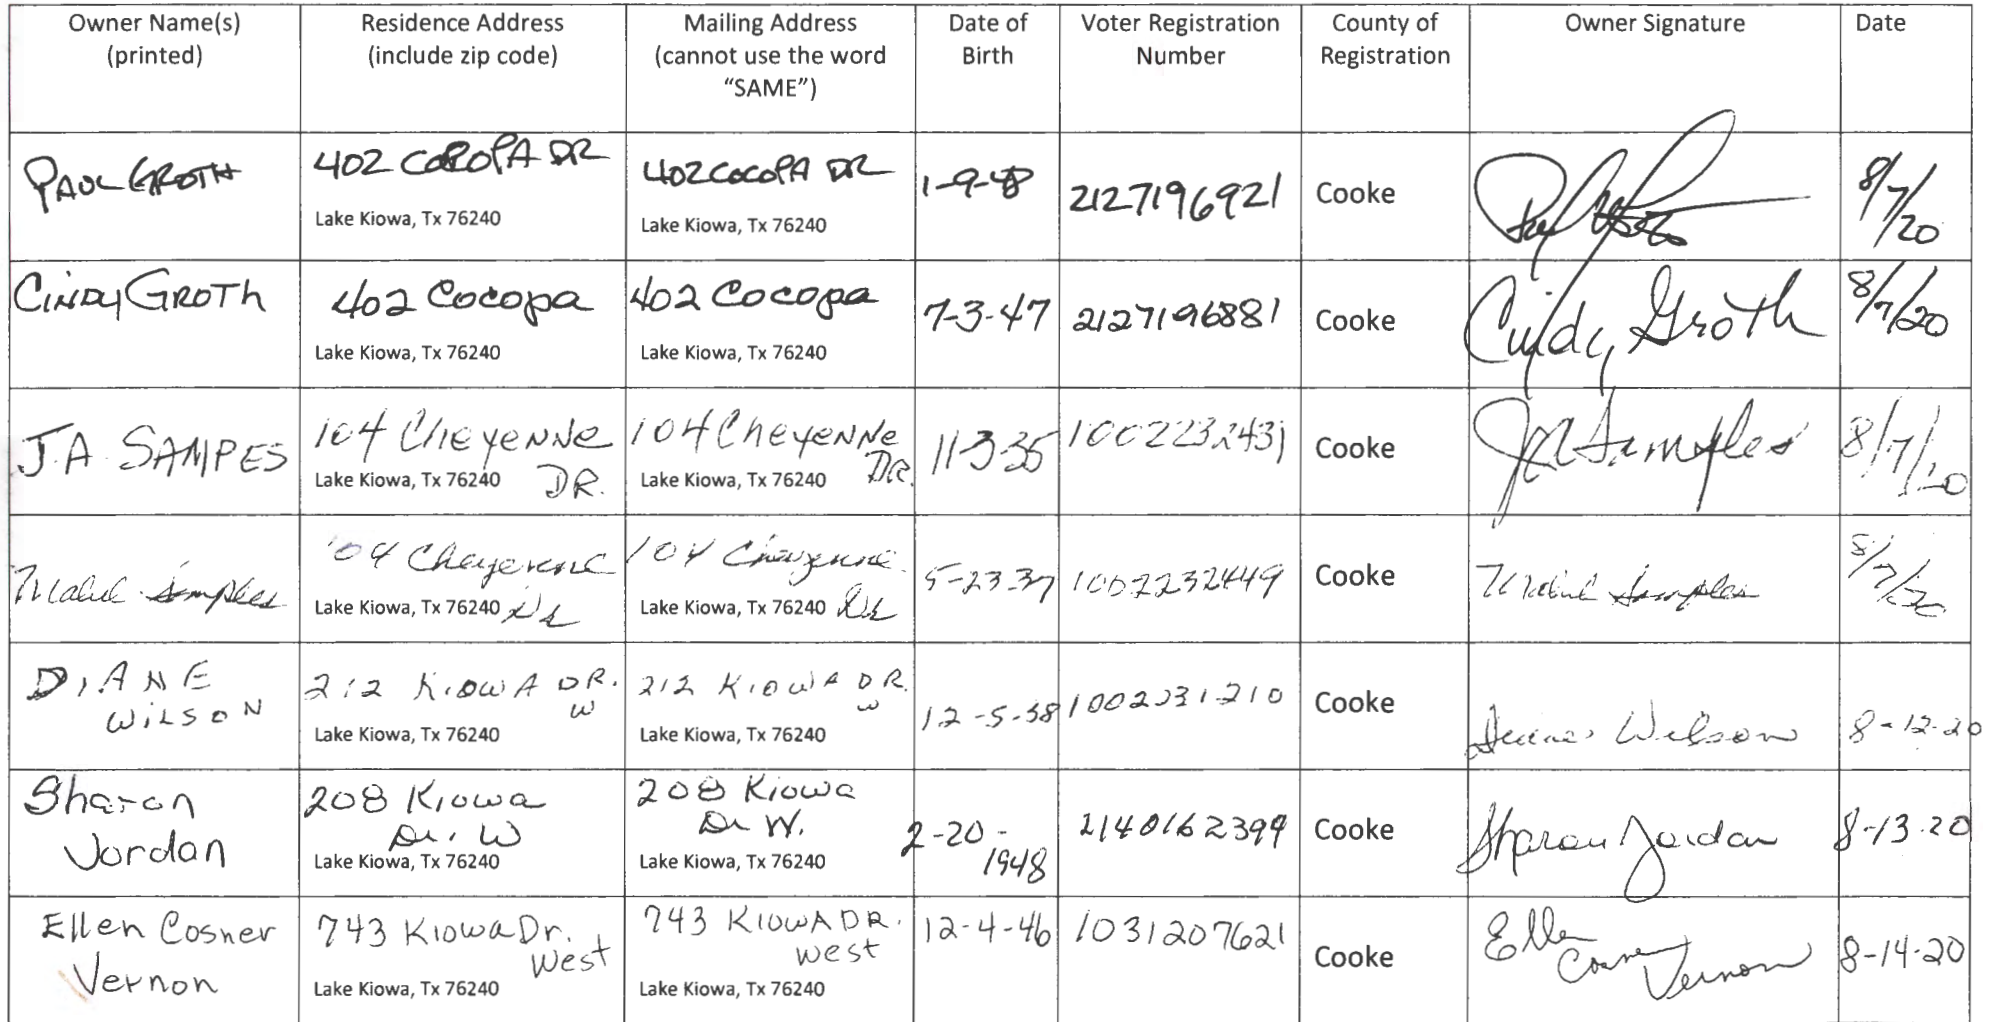 Owner Name(s)
(printed)
Residence Address
(include zip code)
Mailing Address
(cannot use the word
"SAME")
Date of
Birth
Voter Registration
Number
County of
Registration
Owner Signature
Date
PAUL GROTH
402 COCOPA DR
Lake Kiowa, Tx 76240
402 COCOPA DR
Lake Kiowa, Tx 76240
1-9-48
2127196921
Cooke
8/7/20
CINDY GROTH
402 Cocopa
Lake Kiowa, Tx 76240
402 Cocopa
Lake Kiowa, Tx 76240
7-3-47
2127196881
Cooke
Cindy Groth
8/7/20
J.A. SAMPES
104 Cheyenne
DR.
Lake Kiowa, Tx 76240
104 Cheyenne
DR.
Lake Kiowa, Tx 76240
11-3-35
1002232431
Cooke
JA Samples
8/7/20
Samples
104 Cheyenne
Dr
Lake Kiowa, Tx 76240
104 Cheyenne
Dr
Lake Kiowa, Tx 76240
5-23-37
1002232449
Cooke
Samples
8/7/20
DIANE
WILSON
212 KIOWA DR.
W
Lake Kiowa, Tx 76240
212 KIOWA DR.
W
Lake Kiowa, Tx 76240
12-5-38
1002231210
Cooke
Diane Wilson
8-12-20
Sharon
Jordan
208 Kiowa
Dr. W
Lake Kiowa, Tx 76240
208 Kiowa
Dr W.
Lake Kiowa, Tx 76240
2-20-
1948
2140162399
Cooke
Sharon Jordan
8-13-20
Ellen Cosner
Vernon
743 Kiowa Dr.
West
Lake Kiowa, Tx 76240
743 KIOWA DR.
West
Lake Kiowa, Tx 76240
12-4-46
1031207621
Cooke
Ellen
Cosner
Vernon
8-14-20